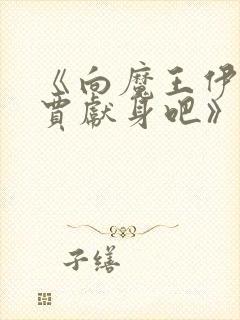 《向魔王伊
賈獻身吧》
子繕